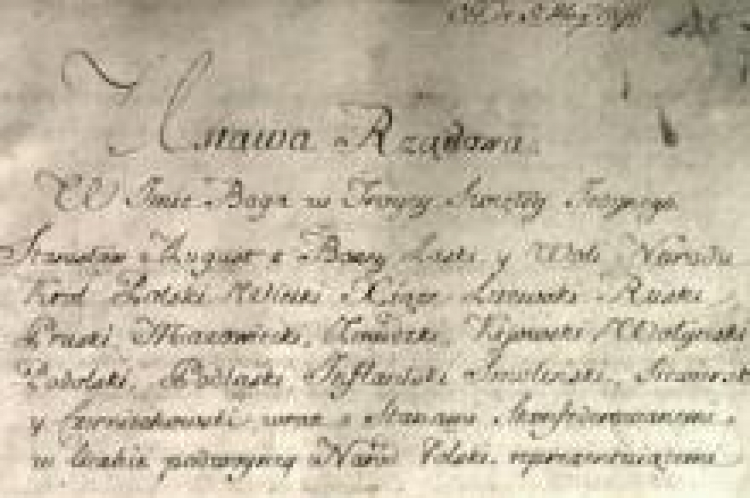 Ustawa Rządowa.
W Imie Boga w Troycy Swiętey Jedynego.
Stanisław August z Bożey Łaski y Woli Narodu
Krol Polski, Wielki Xiąże Litewski, Ruski,
Pruski, Mazowiecki, Żmudzki, Kijowski, Wołyński
Podolski, Podlaski, Inflantski, Smoleński, Siewierski
y Czerniechowski, wraz z Stanami Skonfederowanemi
w liczbie podwoyney Naród Polski reprezentuiącemi